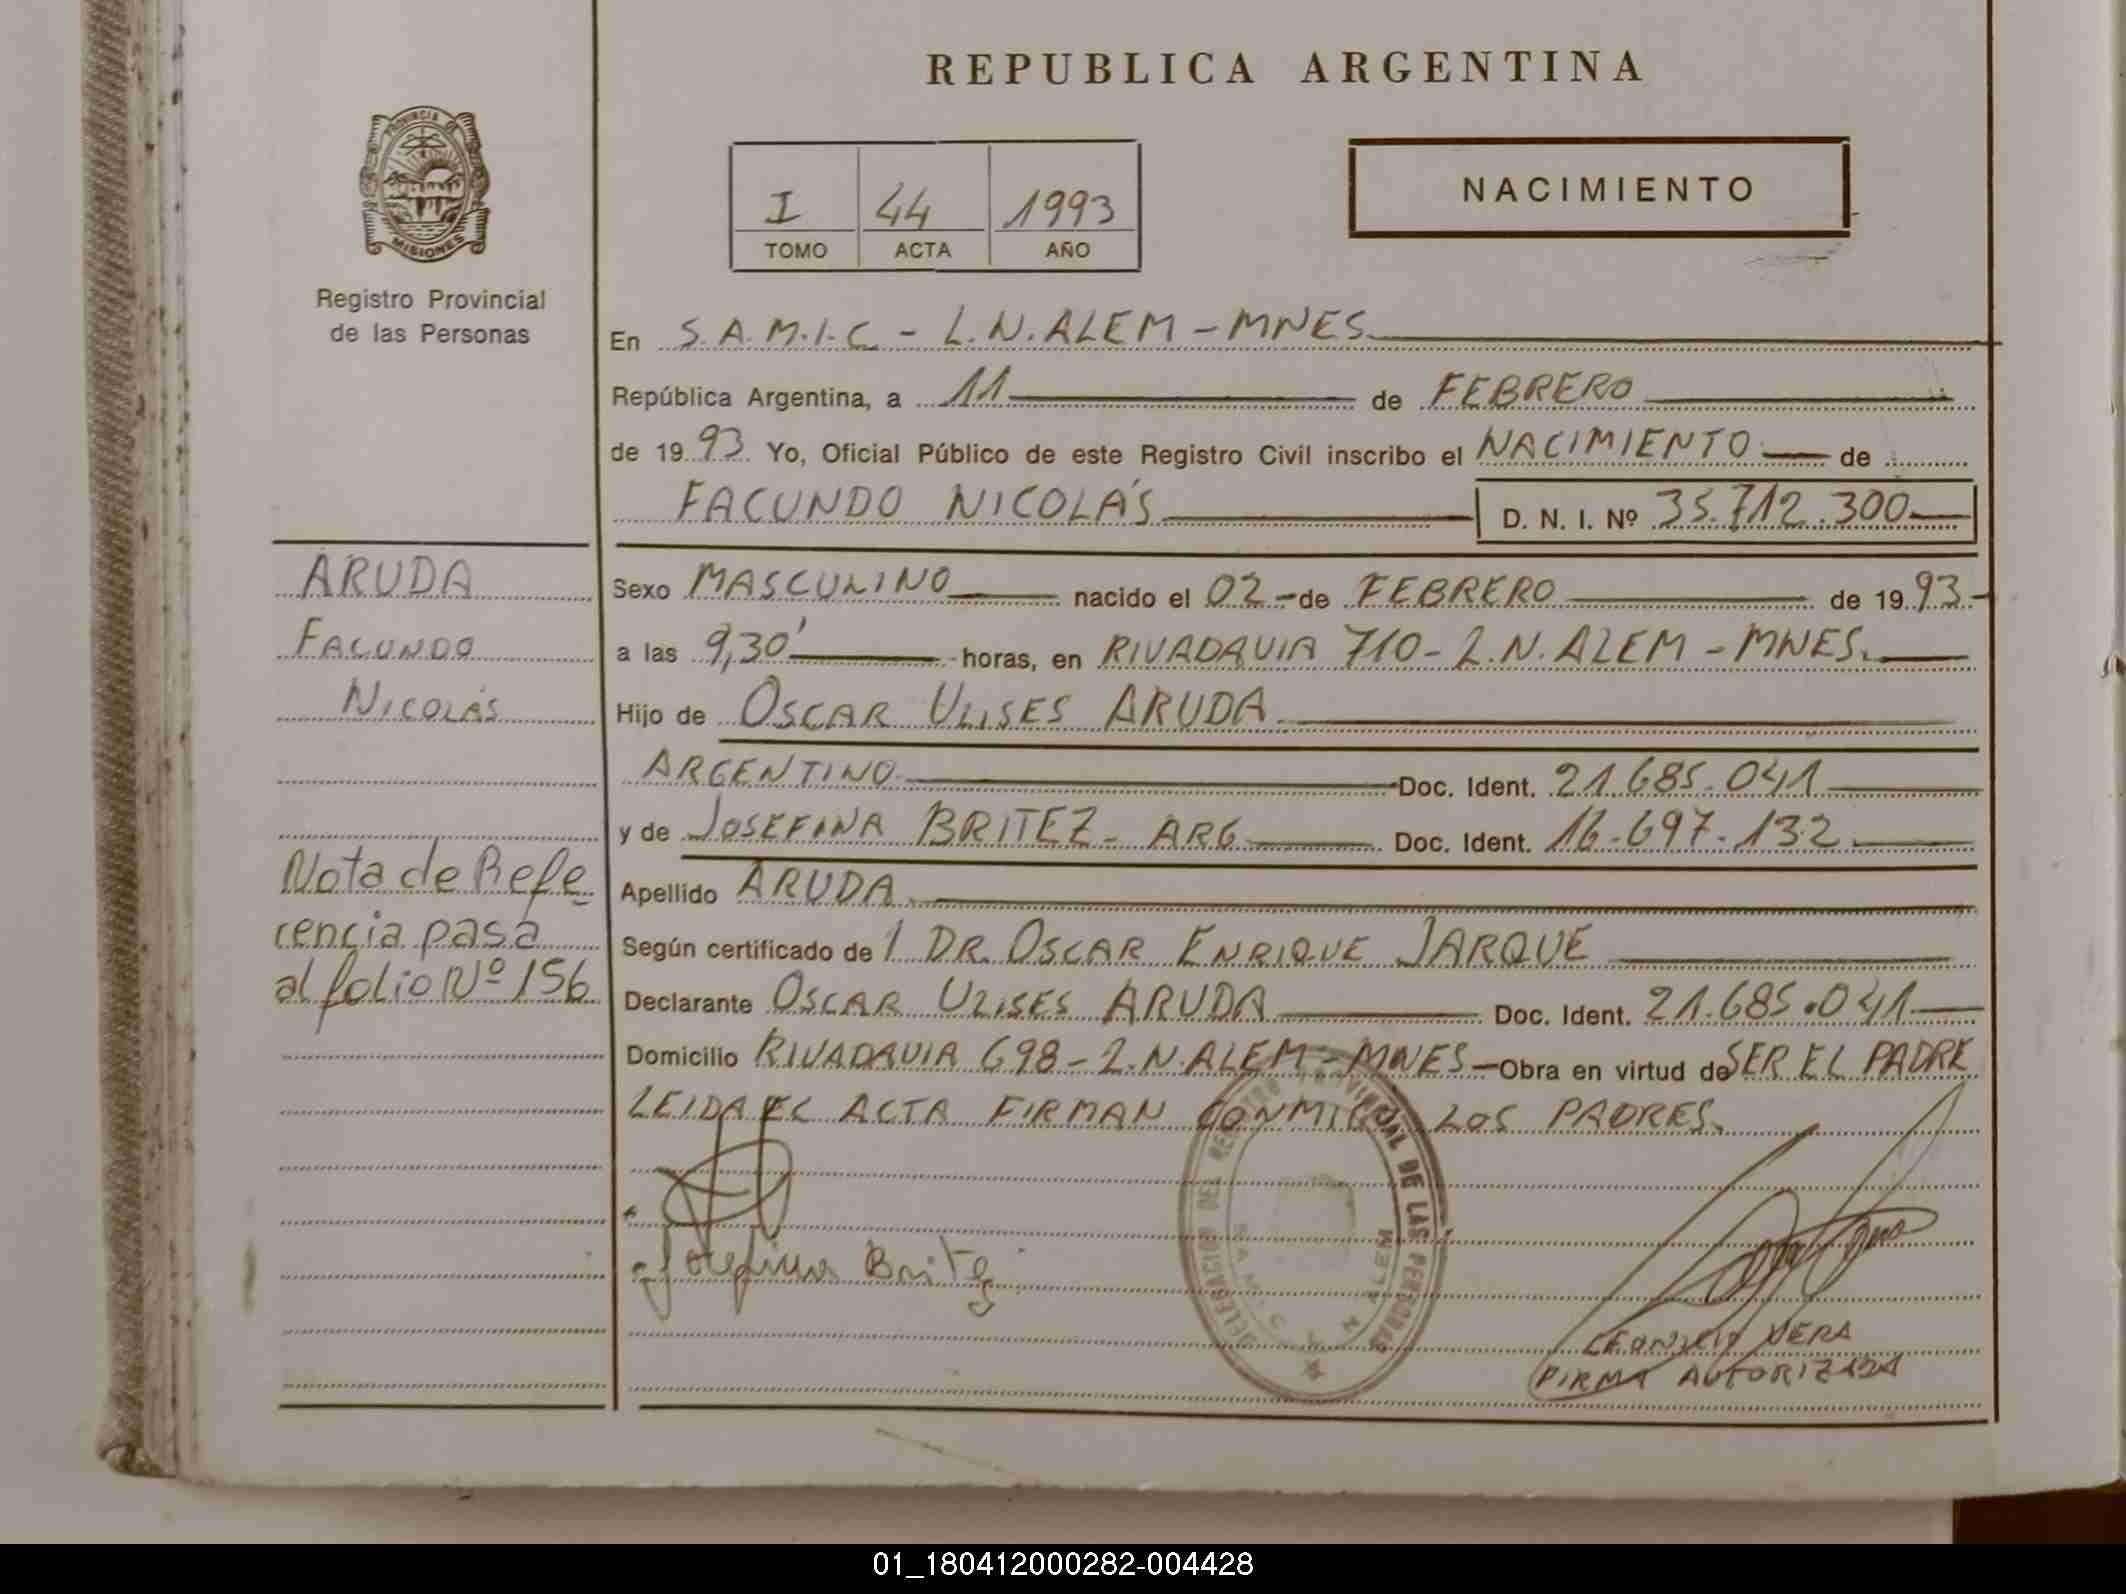 REPUBLICA ARGENTINA
PROVINCIA DE
MISIONES
Registro Provincial
de las Personas
I 44 1993
TOMO ACTA AÑO
NACIMIENTO
En S.A.M.I.C - L.N.ALEM - MNES.
República Argentina, a 11 de FEBRERO
de 1993 Yo, Oficial Público de este Registro Civil inscribo el NACIMIENTO de
FACUNDO NICOLÁS D. N. I. Nº 35.712.300
ARUDA
FACUNDO
NICOLÁS
Nota de Refe
rencia pasa
al folio Nº 156
Sexo MASCULINO nacido el 02 - de FEBRERO de 1993
a las 9,30' horas, en RIVADAVIA 710 - L.N. ALEM - MNES.
Hijo de OSCAR ULISES ARUDA
ARGENTINO Doc. Ident. 21.685.041
y de JOSEFINA BRITEZ - ARG Doc. Ident. 16.697.132
Apellido ARUDA
Según certificado de l DR. OSCAR ENRIQUE JARQUE
Declarante OSCAR ULISES ARUDA Doc. Ident. 21.685.041
Domicilio RIVADAVIA 698 - L.N.ALEM - MNES - Obra en virtud de SER EL PADRE
LEIDA EL ACTA FIRMAN CONMIGO LOS PADRES.
Josefina Britez
DELEGACION DEL REGISTRO PROVINCIAL DE LAS PERSONAS
N ALEM
VERA
FIRMA AUTORIZADA
01_180412000282-004428